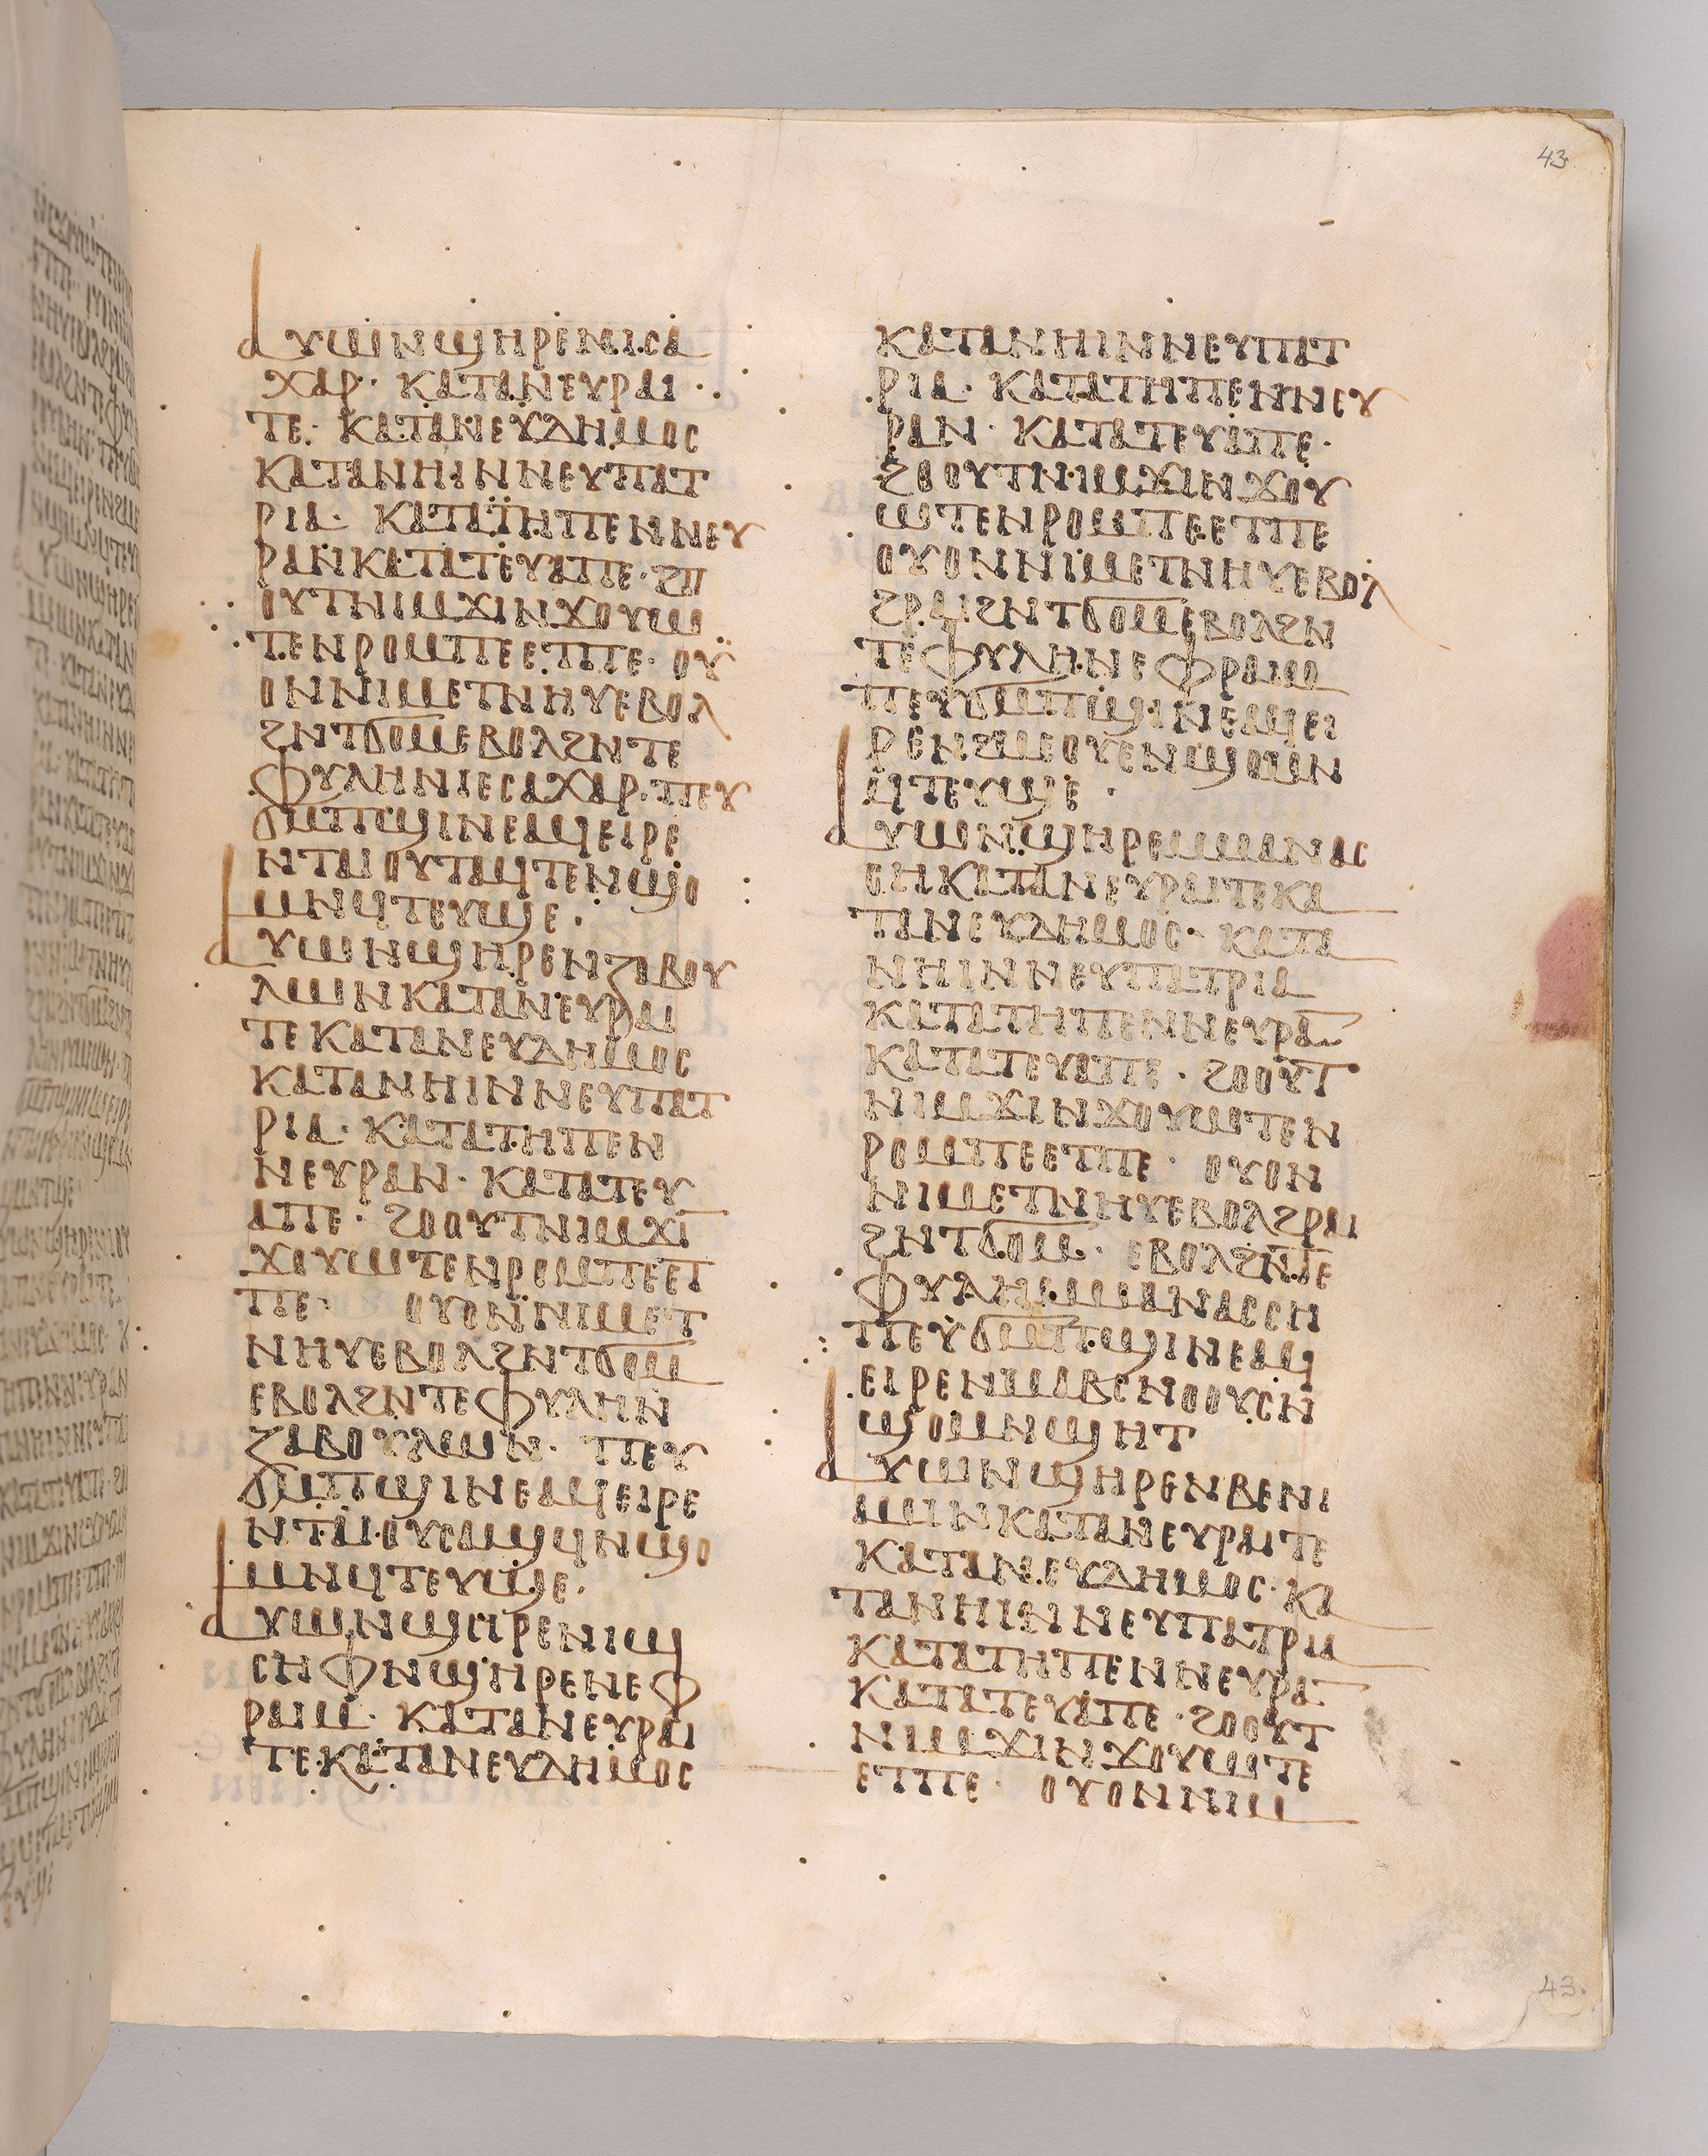 43
ⲁⲩⲱⲛϣⲏⲣⲉⲛⲓⲥⲁ
ⲭⲁⲣ· ⲕⲁⲧⲁⲛⲉⲩⲣⲁⲓ
ⲧⲉ· ⲕⲁⲧⲁⲛⲉⲩⲇⲏⲙⲟⲥ
ⲕⲁⲧⲁⲛⲏⲓⲛⲛⲉⲩⲡⲁⲧ
ⲣⲓⲁ· ⲕⲁⲧⲁⲧⲏⲡⲉⲛⲛⲉⲩ
ⲣⲁⲛⲕⲁⲧⲁⲧⲉⲩⲁⲡⲉ·
ⲟⲩⲧⲛⲓⲙϫⲓⲛϫⲟⲩⲱ
ⲧⲉⲛⲣⲟⲙⲡⲉⲉⲧⲡⲉ· ⲟⲩ
ⲟⲛⲛⲓⲙⲉⲧⲛⲏⲩⲉⲃⲟⲗ
ϩⲛⲧϭⲟⲙⲉⲃⲟⲗϩⲛⲧⲉ
ⲫⲩⲗⲏⲛⲓⲉⲥⲁⲭⲁⲣ· ⲡⲉⲩ
ϭⲙⲡϣⲓⲛⲉⲁϥⲉⲓⲣⲉ
ⲛⲧⲁⲓⲟⲩⲧⲁϥⲧⲉⲛϣⲟ
ⲙⲛϥⲧⲉⲩϣⲉ·
ⲁⲩⲱⲛϣⲏⲣⲉⲛⲍⲁⲃⲟⲩ
ⲗⲱⲛⲕⲁⲧⲁⲛⲉⲩⲣⲁⲓ
ⲧⲉⲕⲁⲧⲁⲛⲉⲩⲇⲏⲙⲟⲥ
ⲕⲁⲧⲁⲛⲏⲓⲛⲛⲉⲩⲡⲁⲧ
ⲣⲓⲁ· ⲕⲁⲧⲁⲧⲏⲡⲉⲛ
ⲛⲉⲩⲣⲁⲛ· ⲕⲁⲧⲁⲧⲉⲩ
ⲁⲡⲉ· ϩⲟⲟⲩⲧⲛⲓⲙϫⲓ
ϫⲟⲩⲱⲧⲉⲛⲣⲟⲙⲡⲉⲉⲧ
ⲡⲉ· ⲟⲩⲟⲛⲛⲓⲙⲉⲧ
ⲛⲏⲩⲉⲃⲟⲗϩⲛⲧϭⲟⲙ
ⲉⲃⲟⲗϩⲛⲧⲉⲫⲩⲗⲏⲛ
ⲍⲁⲃⲟⲩⲗⲱⲛ· ⲡⲉⲩ
ϭⲙⲡϣⲓⲛⲉⲁϥⲉⲓⲣⲉ
ⲛⲧⲁⲓⲟⲩⲥⲁϣϥⲛϣⲟ
ⲙⲛϥⲧⲉⲩϣⲉ·
ⲁⲩⲱⲛϣⲏⲣⲉⲛⲓⲱ
ⲥⲏⲫⲛϣⲏⲣⲉⲛⲉⲫ
ⲣⲁⲓⲙ· ⲕⲁⲧⲁⲛⲉⲩⲣⲁⲓ
ⲧⲉ·ⲕⲁⲧⲁⲛⲉⲩⲇⲏⲙⲟⲥ
ⲕⲁⲧⲁⲛⲏⲓⲛⲛⲉⲩⲡⲁⲧ
ⲣⲓⲁ· ⲕⲁⲧⲁⲧⲏⲡⲉⲛⲛⲉⲩ
ⲣⲁⲛ· ⲕⲁⲧⲁⲧⲉⲩⲁⲡⲉ·
ϩⲟⲟⲩⲧⲛⲓⲙϫⲓⲛϫⲟⲩ
ⲱⲧⲉⲛⲣⲟⲙⲡⲉⲉⲧⲡⲉ
ⲟⲩⲟⲛⲛⲓⲙⲉⲧⲛⲏⲩⲉⲃⲟⲗ
ϩⲣⲁⲓϩⲛⲧϭⲟⲙⲉⲃⲟⲗϩⲛ
ⲧⲉⲫⲩⲗⲏⲛⲉⲫⲣⲁⲓⲙ
ⲡⲉⲩϭⲙⲡϣⲓⲛⲉⲁϥⲉⲓ
ⲣⲉⲛϩⲙⲉⲟⲩⲉⲛϣⲟⲙⲛ
ϥⲧⲉⲩϣⲉ·
ⲁⲩⲱⲛϣⲏⲣⲉⲙⲙⲁⲛⲁⲥ
ⲥⲏⲕⲁⲧⲁⲛⲉⲩⲣⲁⲓⲧⲉⲕⲁ
ⲧⲁⲛⲉⲩⲇⲏⲙⲟⲥ· ⲕⲁⲧⲁ
ⲛⲏⲓⲛⲛⲉⲩⲡⲁⲧⲣⲓⲁ
ⲕⲁⲧⲁⲧⲏⲡⲉⲛⲛⲉⲩⲣⲁⲛ
ⲕⲁⲧⲁⲧⲉⲩⲁⲡⲉ· ϩⲟⲟⲩⲧ
ⲛⲓⲙϫⲓⲛϫⲟⲩⲱⲧⲉⲛ
ⲣⲟⲙⲡⲉⲉⲧⲡⲉ· ⲟⲩⲟⲛ
ⲛⲓⲙⲉⲧⲛⲏⲩⲉⲃⲟⲗϩⲣⲁⲓ
ϩⲛⲧϭⲟⲙ· ⲉⲃⲟⲗϩⲛⲧⲉ
ⲫⲩⲗⲏⲙⲙⲁⲛⲁⲥⲥⲏ
ⲡⲉⲩϭⲙⲡϣⲓⲛⲉⲁϥ
ⲉⲓⲣⲉⲛⲙⲁⲃⲥⲛⲟⲟⲩⲥⲛ
ϣⲟⲙⲛϣⲏⲧ
ⲁⲩⲱⲛϣⲏⲣⲉⲛⲃⲉⲛⲓ
ⲁⲙⲓⲛⲕⲁⲧⲁⲛⲉⲩⲣⲁⲓⲧⲉ
ⲕⲁⲧⲁⲛⲉⲩⲇⲏⲙⲟⲥ· ⲕⲁ
ⲧⲁⲛⲏⲓⲛⲛⲉⲩⲡⲁⲧⲣⲓⲁ
ⲕⲁⲧⲁⲧⲏⲡⲉⲛⲛⲉⲩⲣⲁ
ⲕⲁⲧⲁⲧⲉⲩⲁⲡⲉ· ϩⲟⲟⲩⲧ
ⲛⲓⲙϫⲓⲛϫⲟⲩⲱⲧⲉ
ⲉⲧⲡⲉ· ⲟⲩⲟⲛⲛⲓⲙ
43.